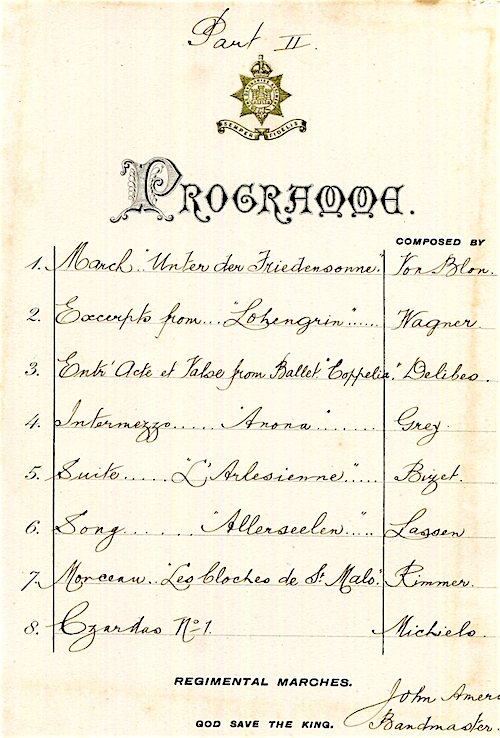 Part II.
SEMPER FIDELIS
PROGRAMME.
COMPOSED BY
1. March. "Unter der Friedensonne." Von Blon.
2. Excerpts from... "Lohengrin"..... Wagner.
3. Entr' Acte et Valse from Ballet "Coppelia." Delibes.
4. Intermezzo..... "Anona"...... Grey.
5. Suite..... "L'Arlesienne"..... Bizet.
6. Song...... "Allerseelen"..... Lassen
7. Morceau.. "Les Cloches de St. Malo". Rimmer.
8. Czardas No 1. Michiels.
REGIMENTAL MARCHES.
John
GOD SAVE THE KING. Bandmaster.